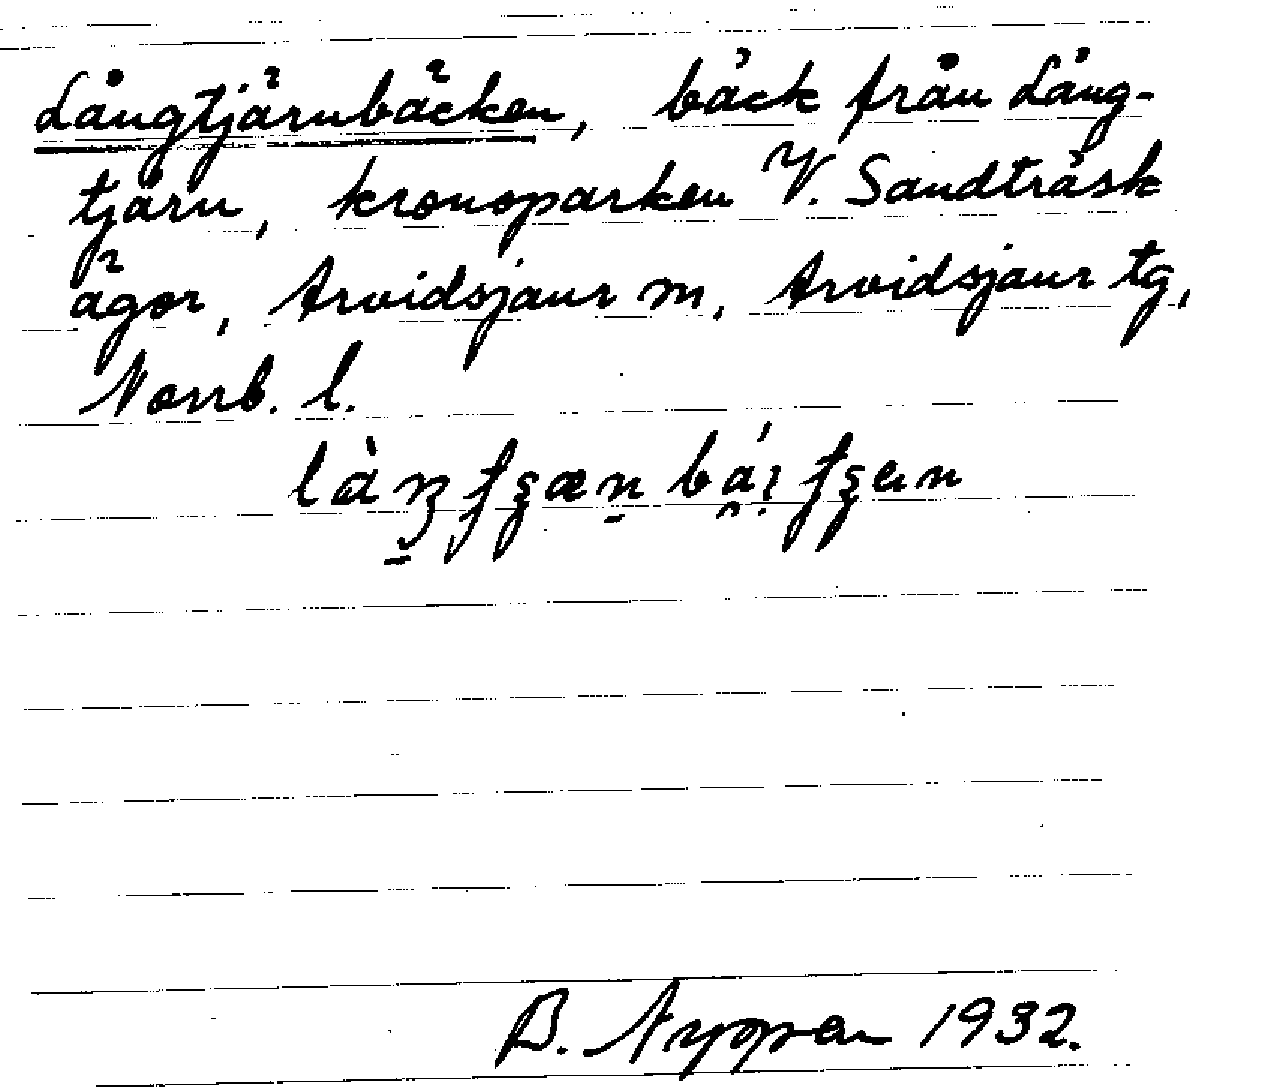 Långtjärnbäcken, bäck från Lång-
tjärn, kronoparken V. Sandträsk
ägor, Arvidsjaur m, Arvidsjaur tg,
Norrb. l.
B. Nygren 1932.